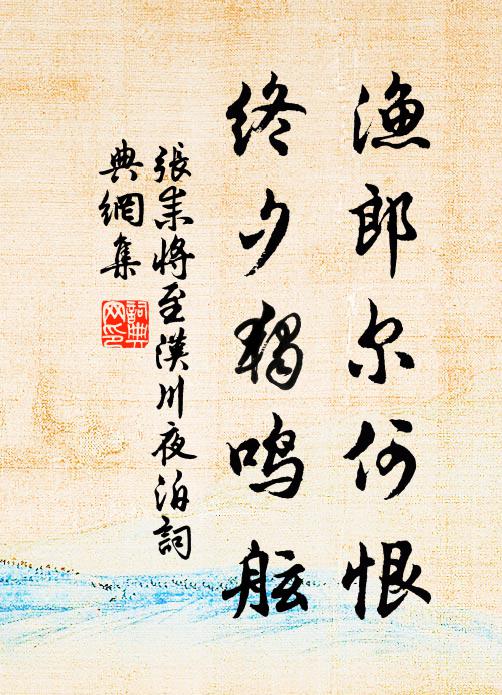 渔郎尔何恨
终夕独鸣舷
張耒將至漢川夜泊詞
典網集
詞典
网印